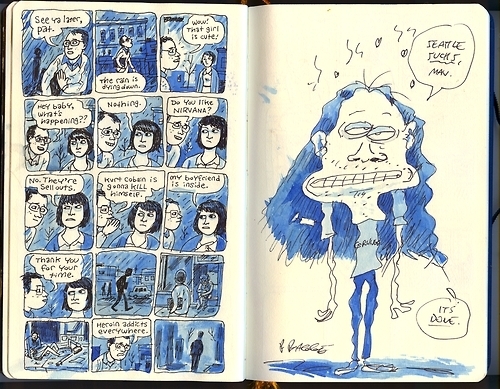 See ya later,
pat.
The rain is
dying down.
Wow!
That girl
is cute!
Hey baby,
what's
happening??
Nothing.
Do you like
NIRVANA?
No. They're
Sell outs.
Kurt Cobain is
gonna KILL
himself.
my boyfriend
is inside.
Thank you
for your
time.
Heroin addicts
everywhere.
SEATTLE
SUCKS,
MAN.
GRUNGE
IT'S
DONE.
P. BAGGE